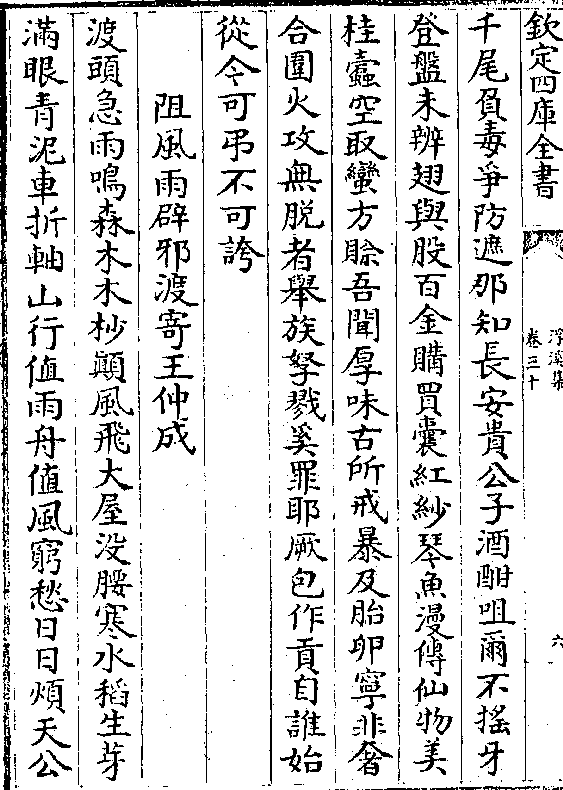 欽定四庫全書
浮溪集
卷三十
六
千尾負毒爭防遮那知長安貴公子酒酣咀爾不搖牙
登盤未辨翅與股百金購買囊紅紗琴魚漫傳仙物美
桂蠧空取蠻方賒吾聞厚味古所戒暴及胎卵寧非奢
合圍火攻無脱者舉族孥戮奚罪耶厥包作貢自誰始
從今可弔不可誇
阻風雨辟邪渡寄王仲成
渡頭急雨鳴森木木杪顛風飛大屋没腰寒水稻生芽
滿眼青泥車折軸山行值雨舟值風窮愁日日煩天公